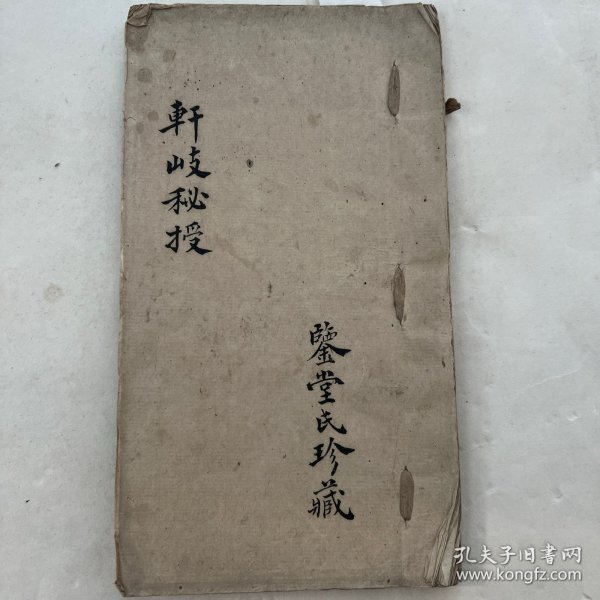 軒岐秘授
鑒堂氏珍藏
孔夫子旧書网
www.kongfz.com